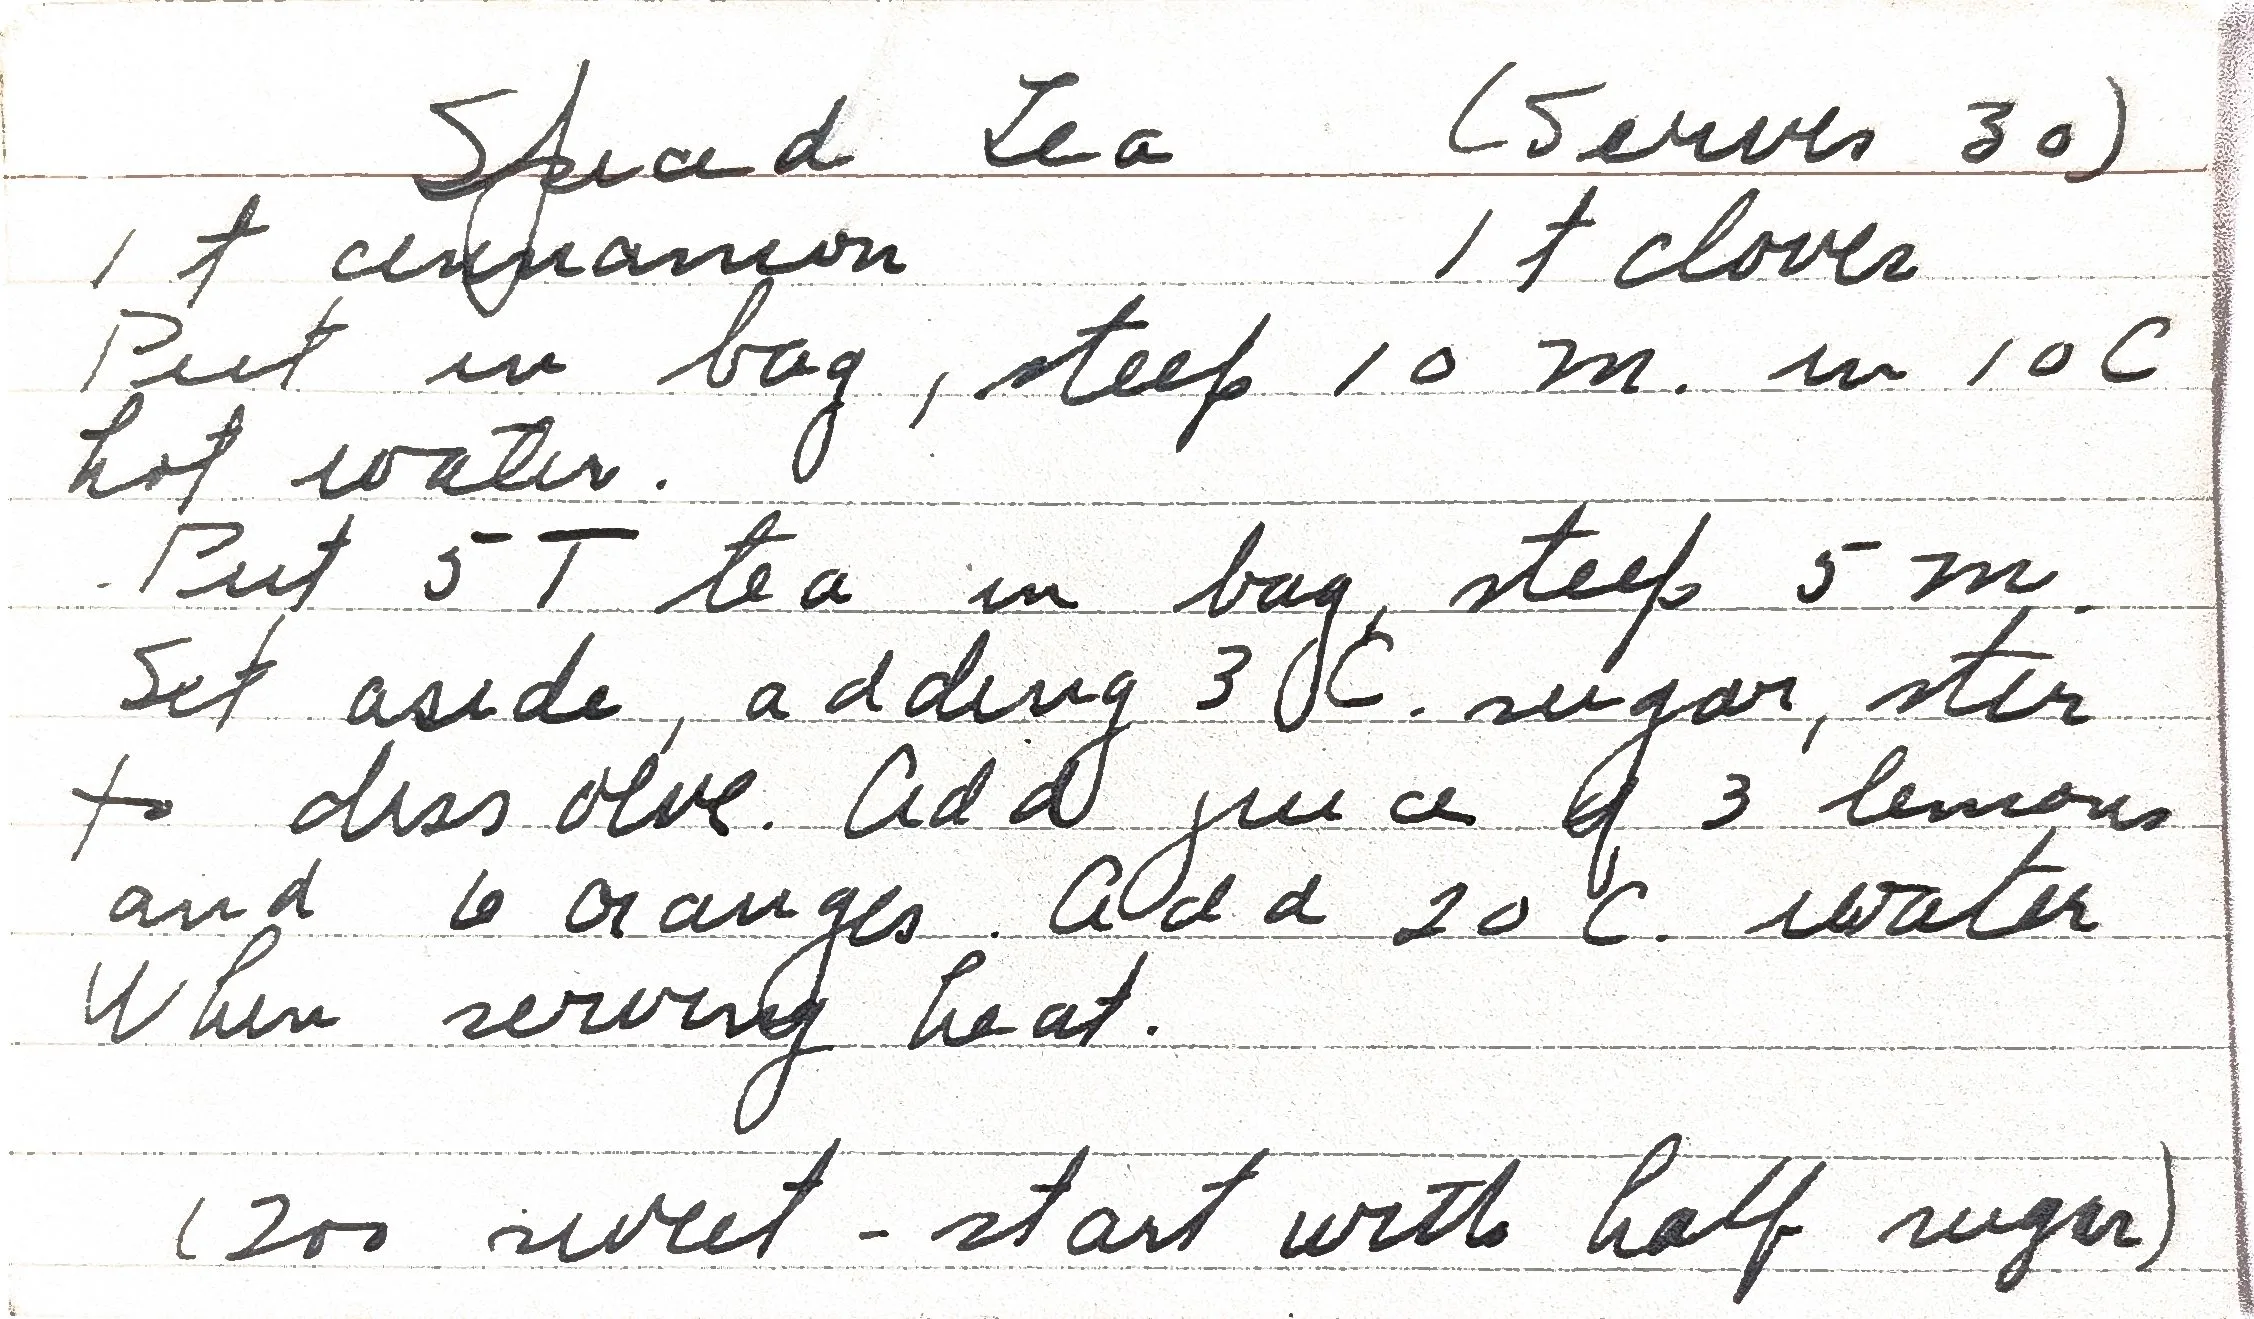 Spiced Tea (Serves 30)
1 t cinnamon 1 t cloves
Put in bag, steep 10 m. in 10 C
hot water.
Put 5 T tea in bag, steep 5 m.
Set aside, adding 3 C. sugar, stir
to dissolve. Add juice of 3 lemons
and 6 oranges. Add 20 C. water
When serving heat.
(Too sweet - start with half sugar)